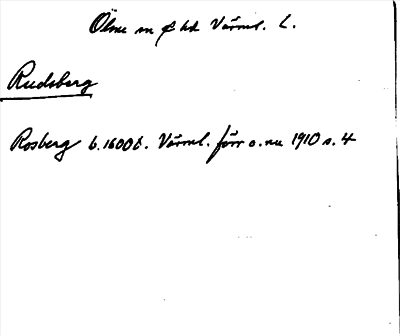 Ölme sn o hd Värml. L.
Rudsberg
Rosberg b. 1600 t. Värml. förr o. nu 1910 s. 4